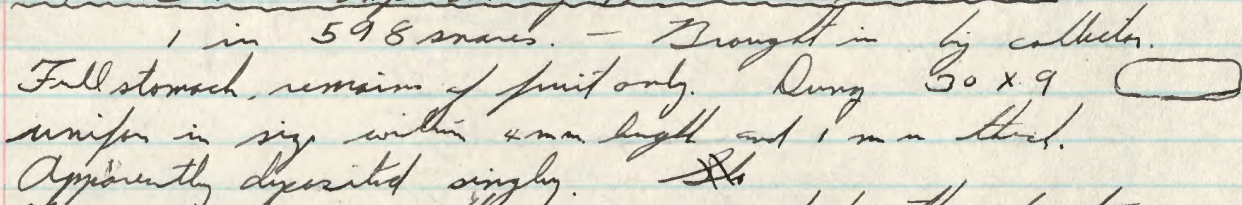 1 in 598 snares. — Brought in by collector.
Full stomach, remains of fruit only. Dung 30 x 9
unifor in size within 4 mm length and 1 mm thick.
Apparently deposited singly.